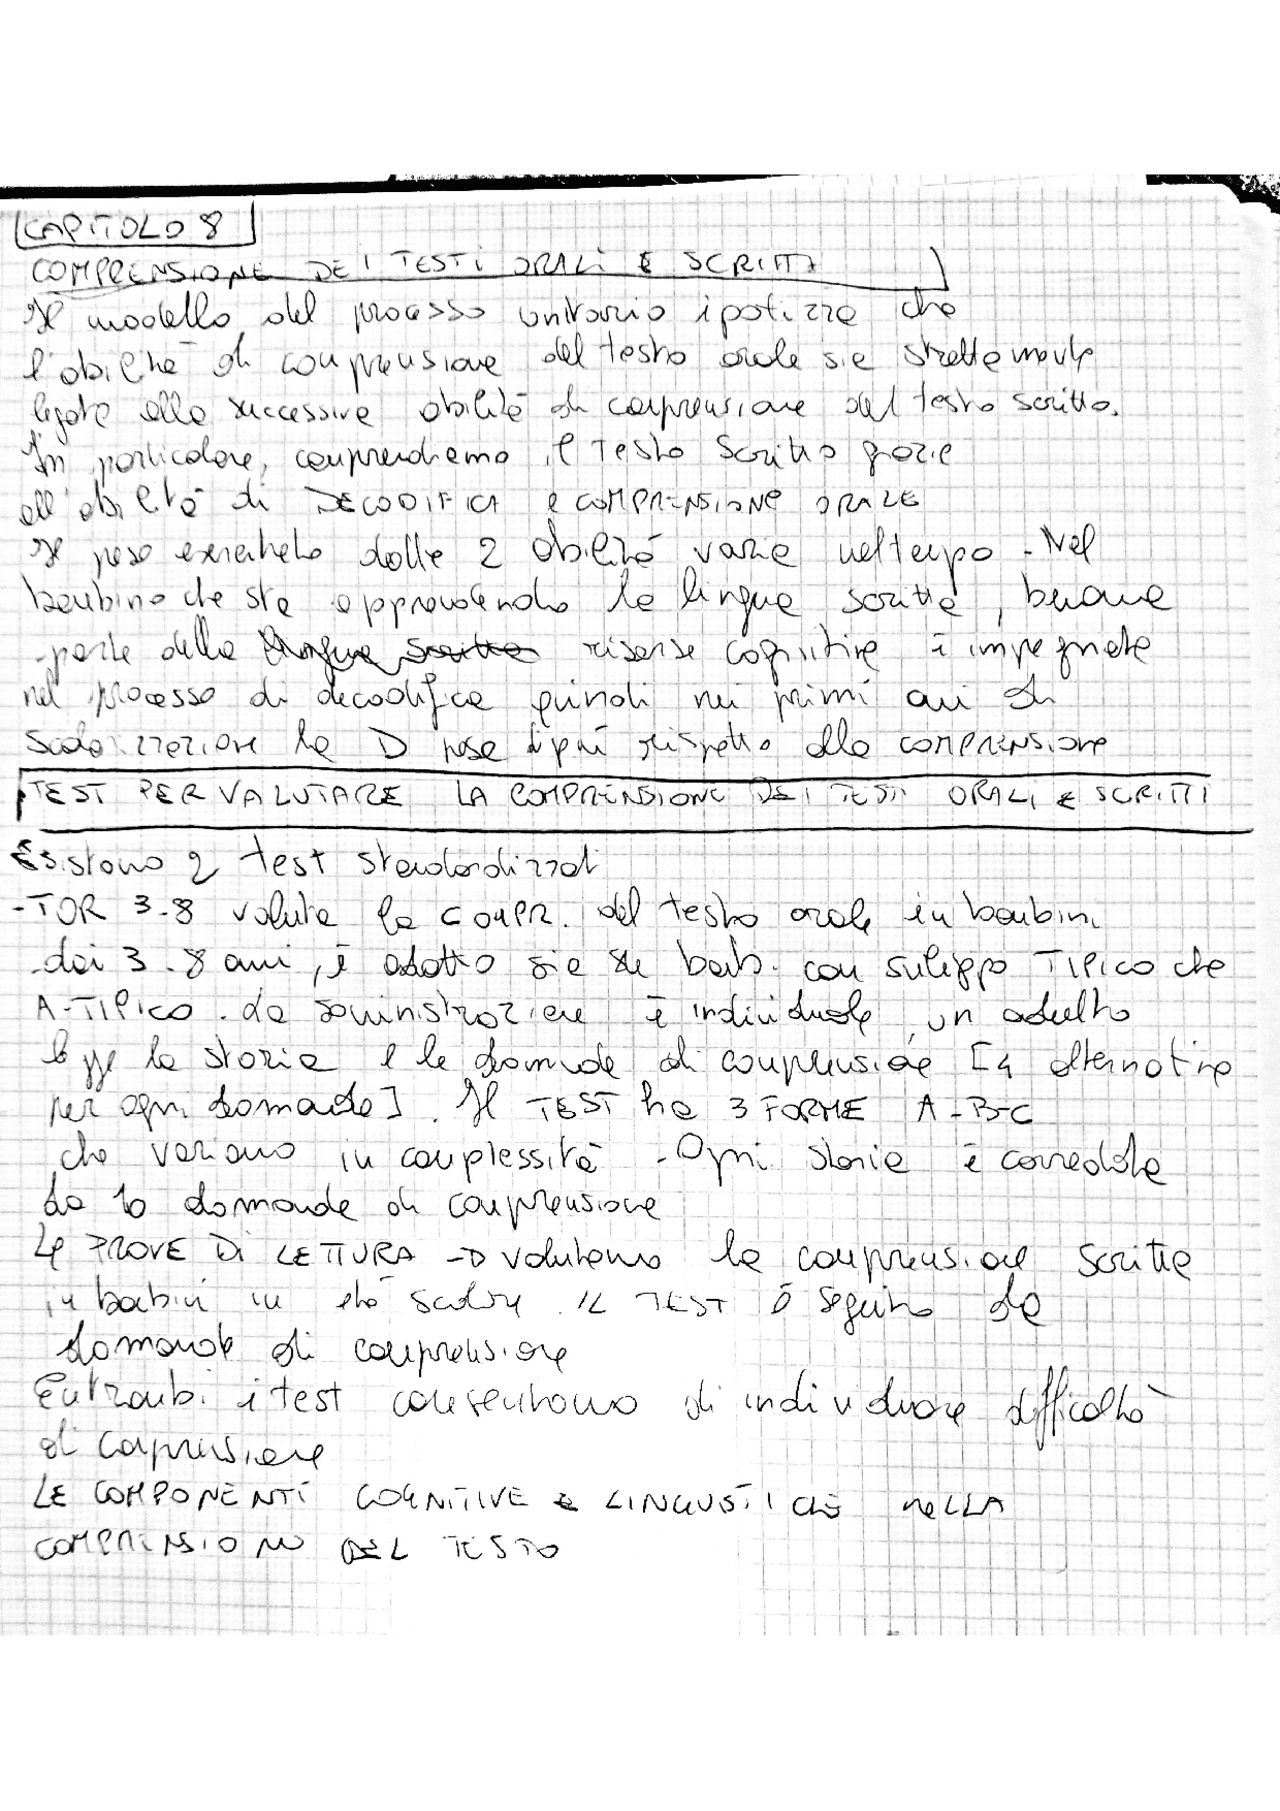 CAPITOLO 8
COMPRENSIONE DEI TESTI ORALI E SCRITTI
Il modello del processo unitario ipotizza che
l'abilità di comprensione del testo orale sia strettamente
legata alla successiva abilità di comprensione del testo scritto.
In particolare, comprendiamo il testo scritto grazie
all'abilità di DECODIFICA e COMPRENSIONE ORALE
Il peso esercitato dalle 2 abilità varia nel tempo - Nel
bambino che sta apprendendo la lingua scritta, buona
parte delle lingua scritta risorse cognitive è impegnata
nel processo di decodifica quindi nei primi anni di
scolarizzazione la D pesa di più rispetto alla COMPRENSIONE
TEST PER VALUTARE LA COMPRENSIONE DEI TESTI ORALI E SCRITTI
Esistono 2 test standardizzati
-TOR 3-8 valuta la COMPR. del testo orale in bambini
dai 3-8 anni, è adatto sia su bamb. con sviluppo TIPICO che
A-TIPICO. La somministrazione è individuale, un adulto
legge la storia e le domande di comprensione [4 alternative
per ogni domanda]. Il TEST ha 3 FORME A-B-C
che variano in complessità - Ogni storia è corredata
da 10 domande di comprensione
Le PROVE DI LETTURA -D valutano la comprensione scritta
in bambini in età scolare. IL TEST è seguito da
domande di comprensione
Entrambi i test consentono di individuare difficoltà
di comprensione
LE COMPONENTI COGNITIVE E LINGUISTICHE NELLA
COMPRENSIONE DEL TESTO